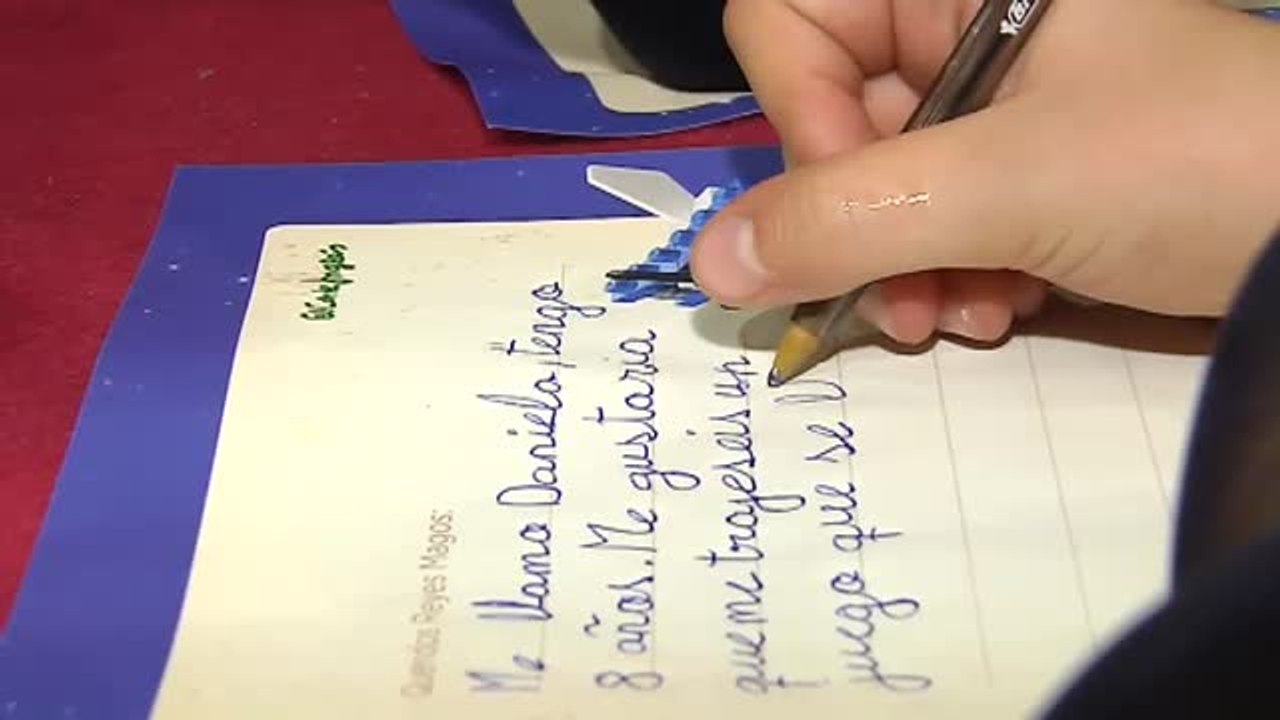 Queridos Reyes Magos:
Me llamo Daniela, tengo
8 años. Me gustaria
que me trajeseis un
juego que se ll